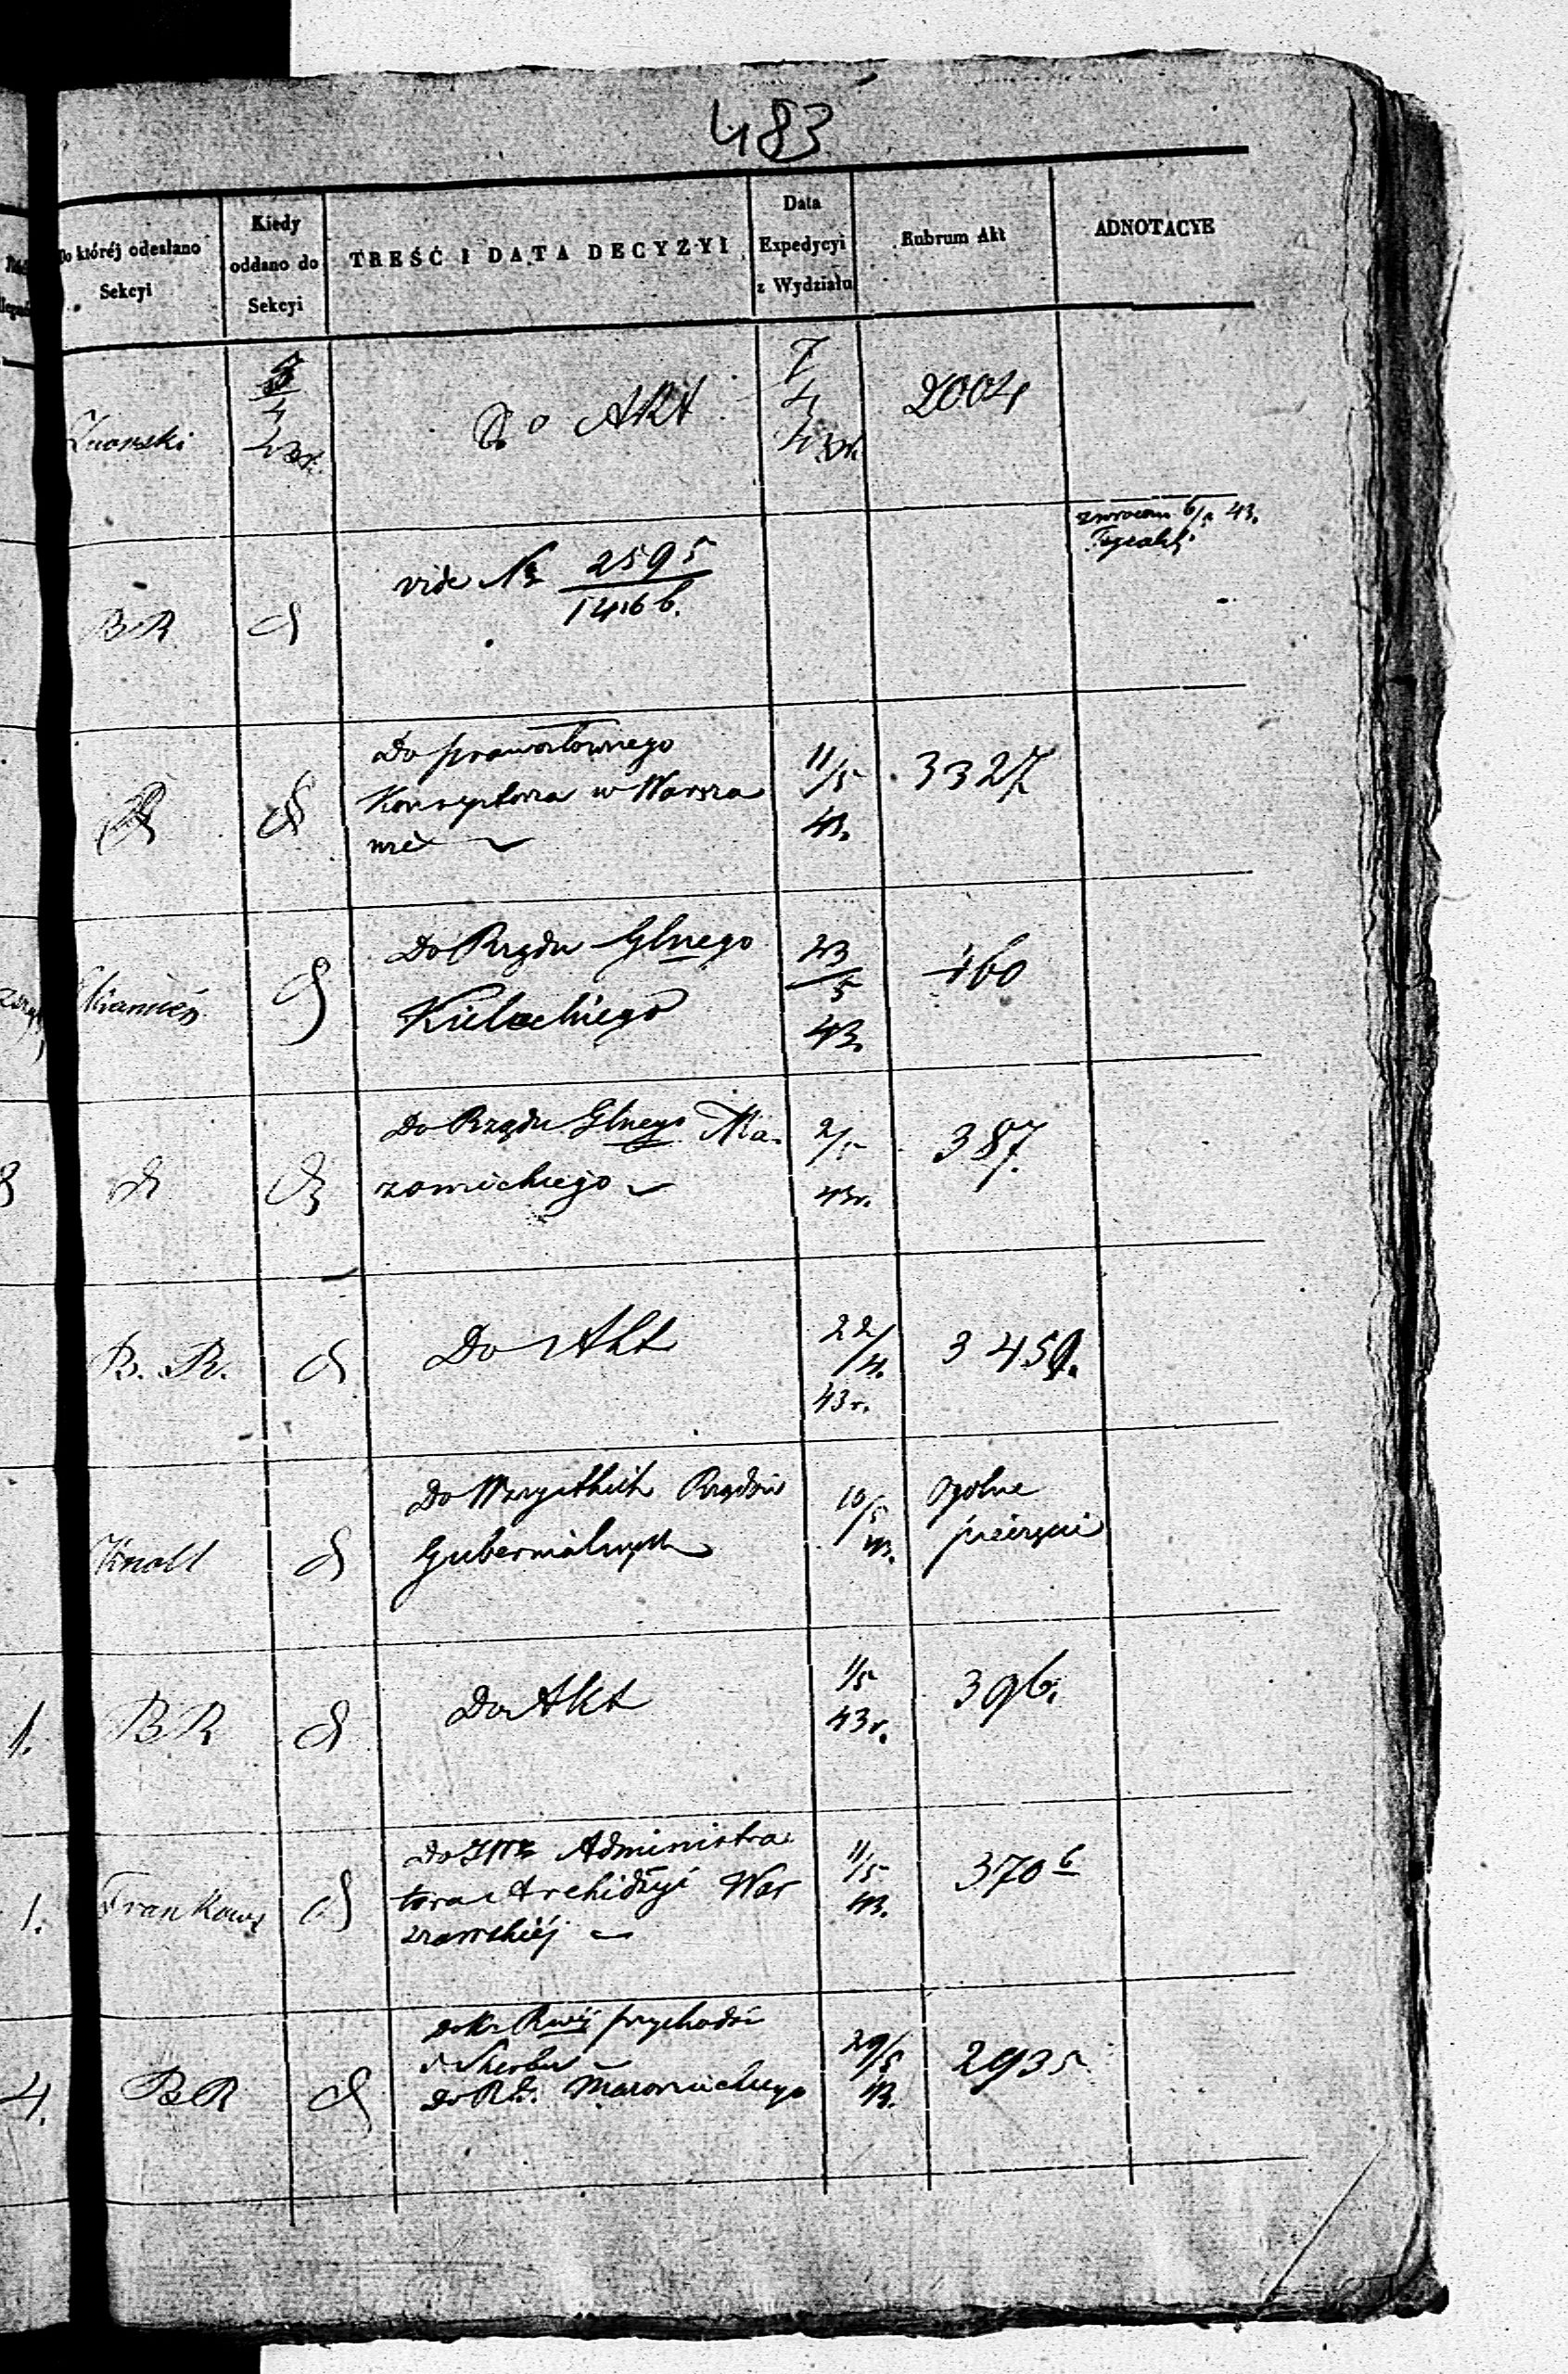 483
Do któréj odesłano
Sekcyi
Kiedy
oddano do
Sekcyi
TREŚĆ I DATA DECYZYI
Data
Expedycyi
z Wydziału
Rubrum Akt
ADNOTACYE
4
Do Akt
7
4
43r.
2004
BR
vide No 2595
1456 6.
43.
Do prawosławnego
Konsystorza w Warsza
wie
11/5
43.
3327
Do Rządu Glnego
Kieleckiego
23
5
43.
160
Do Rządu Glnego Ma-
zowieckiego
2/5
43r.
387.
B. R.
Do Akt
22/4.
43r.
3459.
Knoll
Do Wszystkich Rządów
Gubernialnych
10/5
43.
Ogólne
1.
BR
Do Akt
1/5
43r.
396.
1.
Frankows
Do JW Administra
tora Archidyi War
szawskiéj
11/5
43.
370 6
4.
BR
przychodów
i Skarbu
Do Mazowieckiego
29/5
43.
2935